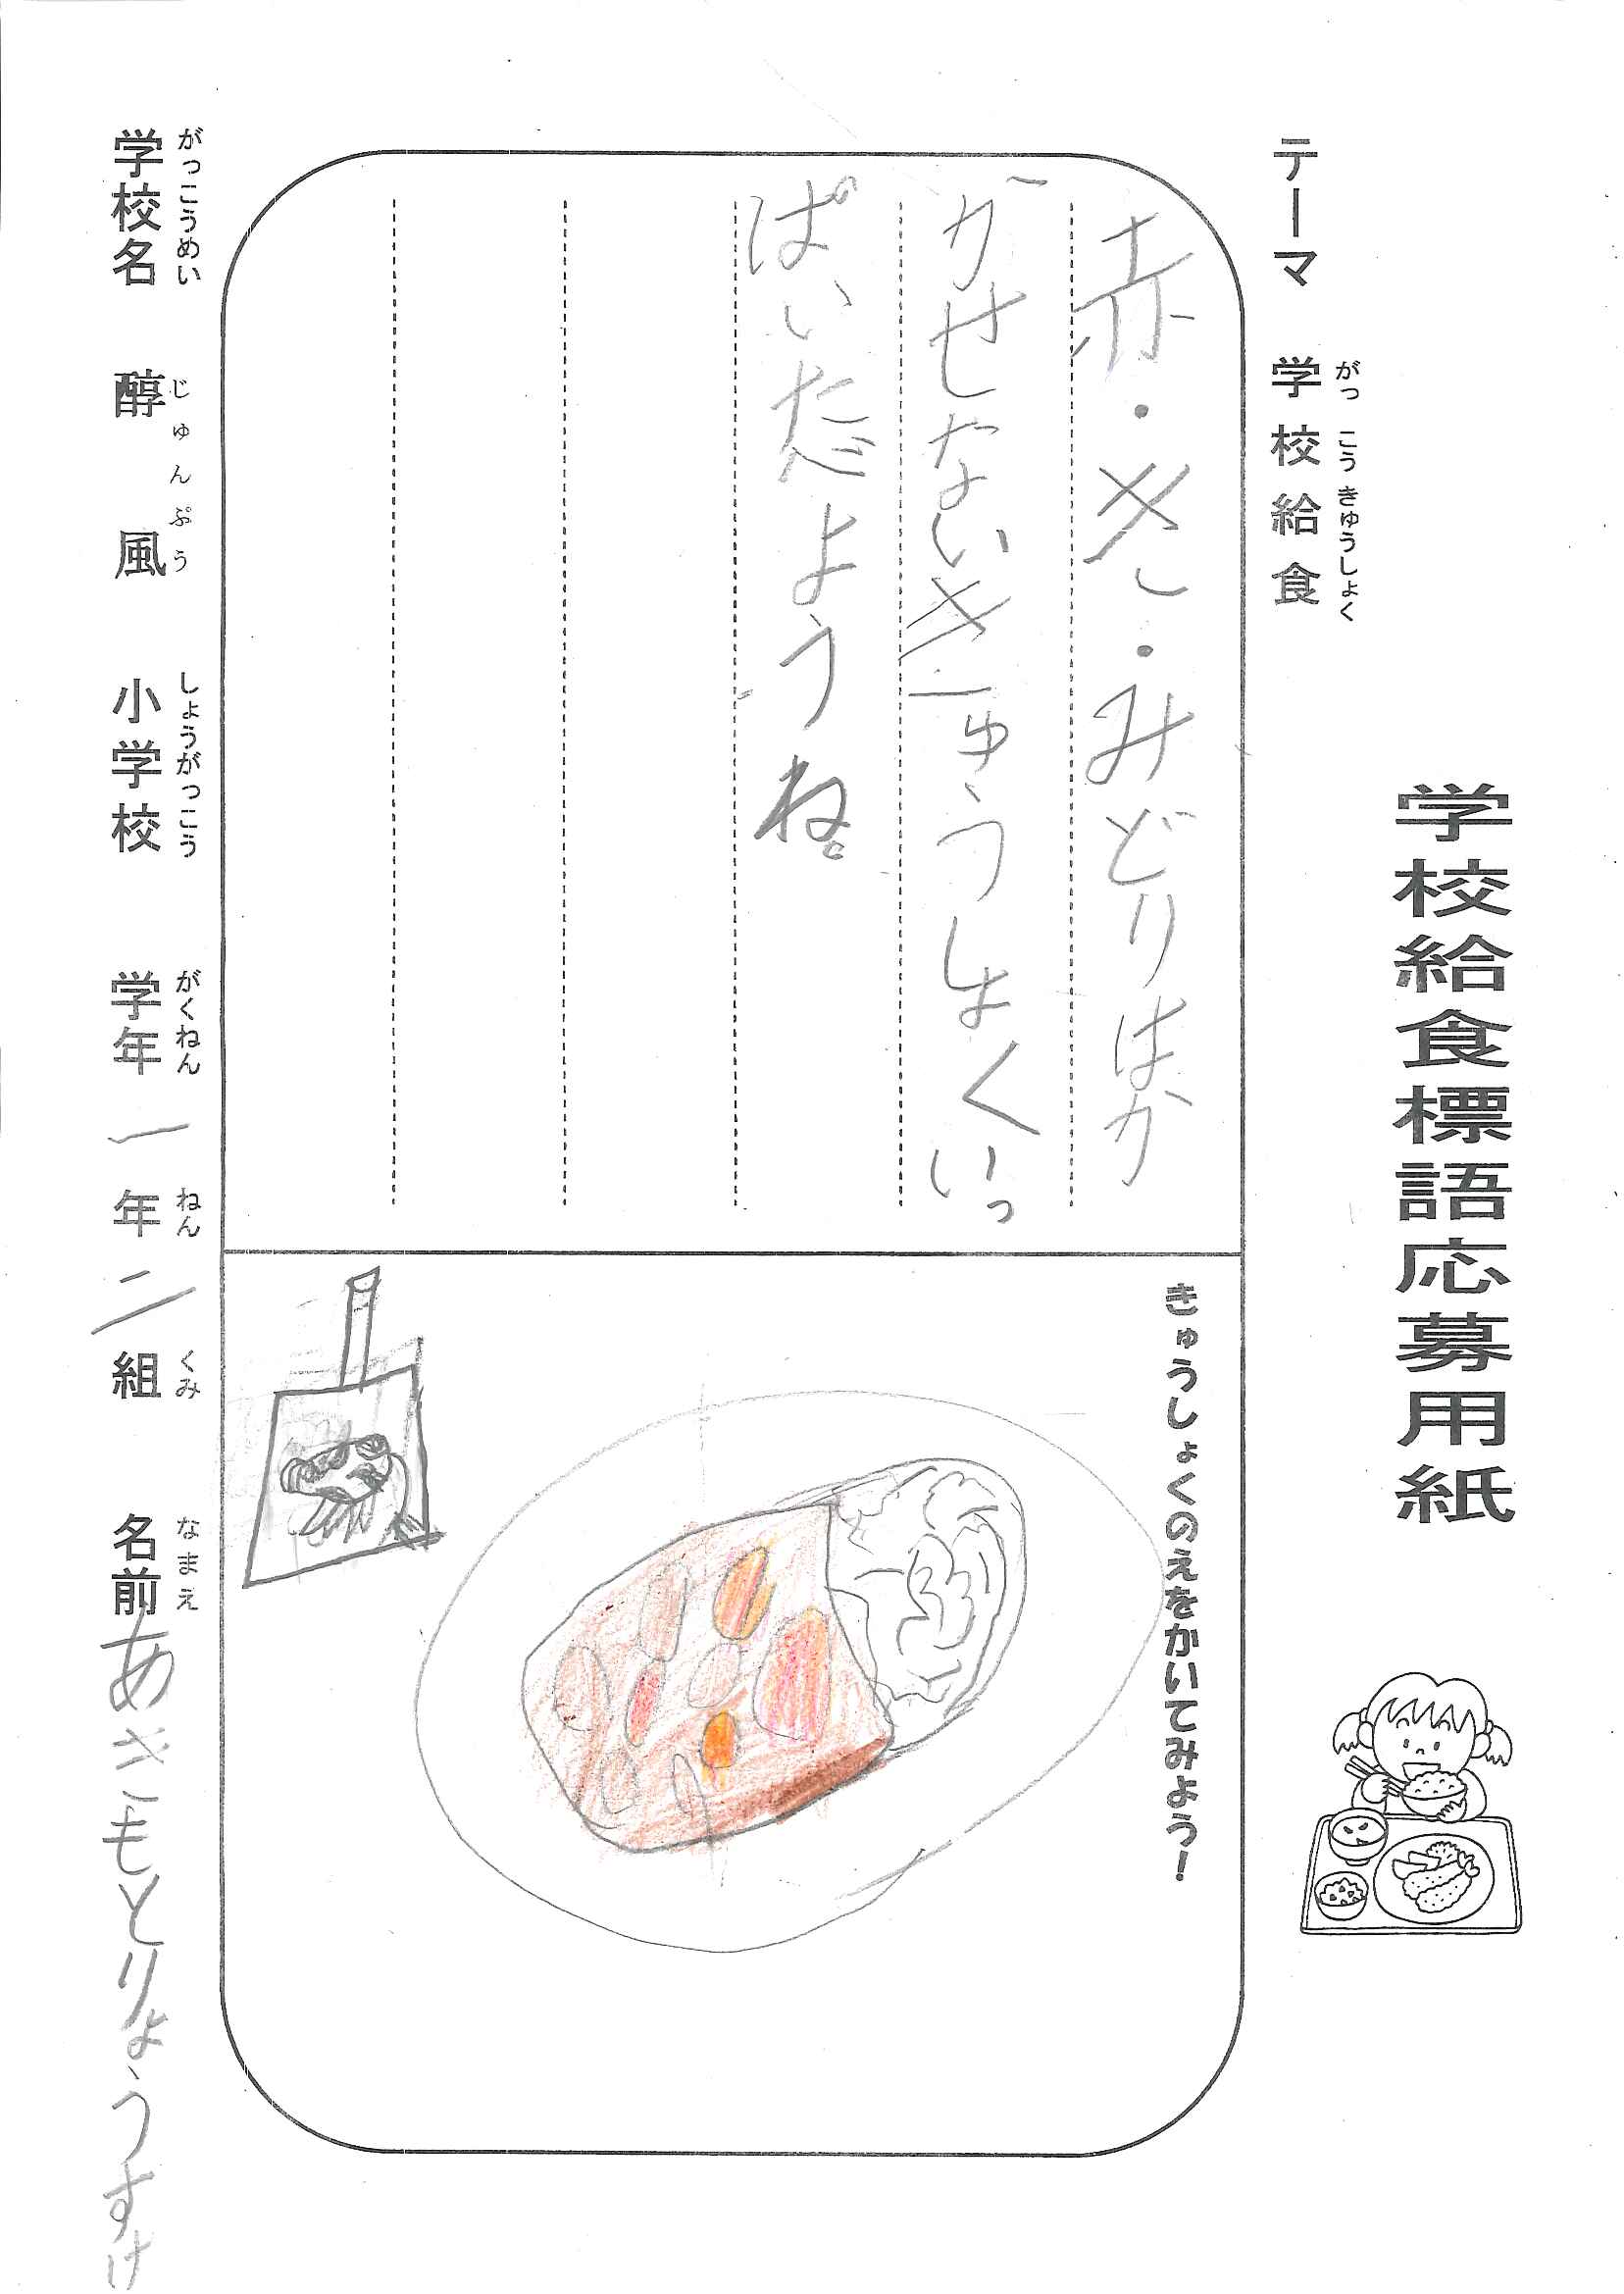 学校給食標語応募用紙
テーマ 学校給食
がっこうきゅうしょく
赤・き・みどりはか
がせないきゅうしょくいっ
ぱいだようね。
きゅうしょくのえをかいてみよう!
がっこうめい じゅんぷう しょうがっこう がくねん ねん くみ なまえ
学校名 醇風 小学校 学年 一年 二組 名前 あきもとりょうすけ